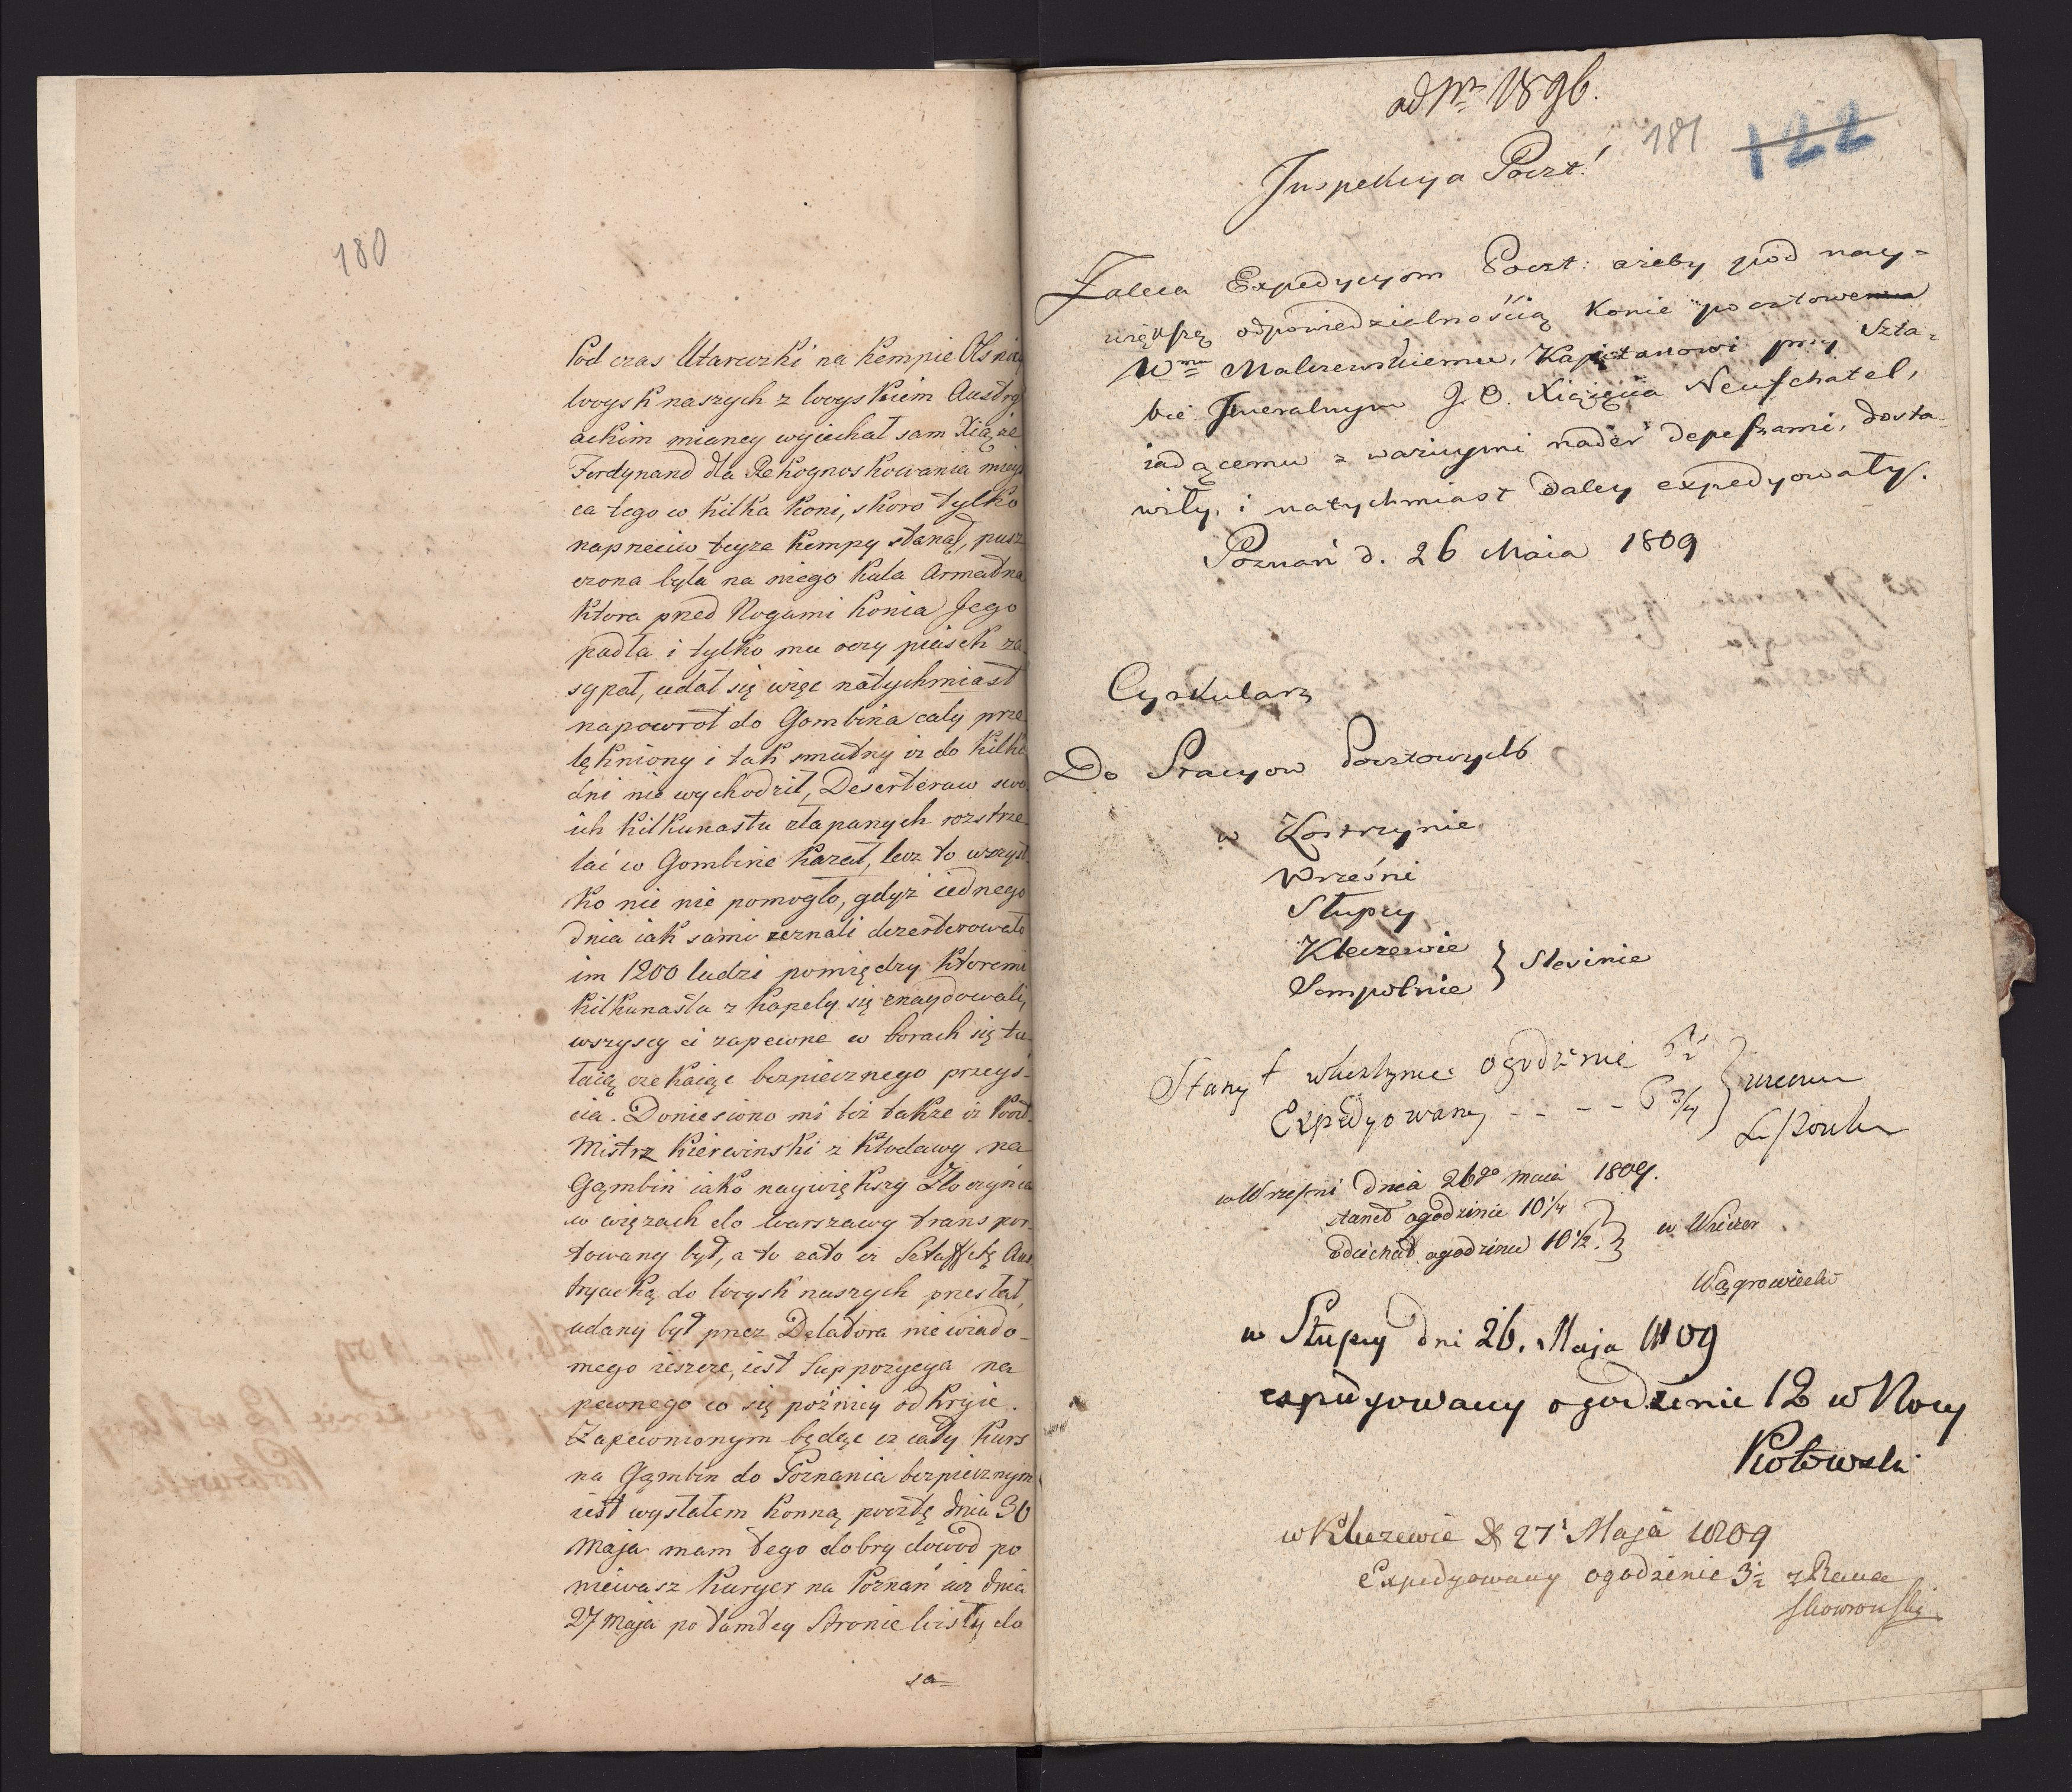 180
Pod czas Utarczki na Kempie Olsnic
Woysk naszych z Woyskiem Austry
ackim mianey wyjechał sam Xiąże
Ferdynand dla Rekognoskowania mieys
ca tego w kilka Koni, skoro tylko
naprzeciw teyze Kempy stanął, pusz
czona była na niego Kula Armatna
Ktora przed Nogami Konia Jego
padła i tylko mu oczy piasek za
sypał, udał się więc natychmiast
napowrot do Gombina cały prze
lękniony i tak smutny iz do kilku
dni nie wychodził, Deserterow swo
ich kilkunastu złapanych rozstrze
lać w Gombine Kazał, lecz to wszyst
ko nic nie pomogło, gdyż iednego
dnia iak sami zeznali dezerterowało
im 1200 ludzi pomiędzy Ktoremi
Kilkunastu z Kapely się znaydowali,
wszyscy ci zapewne w borach się tu
łaią czekaiąc bezpiecznego przeys-
cia. Doniesiono mi też także iz Post
Mistrz Kierwinski z Kłodawy na
Gąmbin iako naywiększy Złoczyńca
w więzach do Warszawy transpor
towany był, a to zato iz Sztaffetę Aus
tryacką do Woysk naszych przesłał,
udany był przez Delatora niewiado-
mego ieszcze, iest Suppozycya na
pewnego co się późniey odkryie.
Zapewnionym będąc iz cały Kurs
na Gąmbin do Poznania bezpiecznym
iest wysłałem Konną pocztę dnia 30
Maja mam tego dobry dowod po
niewasz Kuryer na Poznań iuz dnia
27 Maja po tamtey Stronie Wisły do
sa=
ad Nr 1896.
181 122
Inspekcya Poczt:
Zaleca Expedycyom Poczt: ażeby pod nay=
większą odpowiedzialnością Konie pocztowe
Wmu Malczewskiemu, Kapitanowi przy Szta=
bie Jeneralnym J. O. Xiążęcia Neufchatel,
iadącemu z ważnymi nader depeszami, dosta=
wiły, i natychmiast daley expedyowały.
Poznań d. 26 Maia 1809
Cyrkularz
Do Stacyow Pocztowych
w Kostrzynie
Wrześni
Słupcy
Kleczewie
Sompolnie } Slesinie
Stanął w Kostrzynie o godzinie 6½
Expedyowany - - - - 6¾
w Wrześni dnia 26go maia 1809.
stanoł ogodzinie 10¼
odiechał ogodzinie 10½. } w Wieczor
Wągrowiecki
w Słupcy dni 26. Maja 1809
expedyowany o godzinie 12 w Nocy
Kotowski
w Kleczewie d 27 Maja 1809
Expedyowany ogodzinie 3½ z Rana